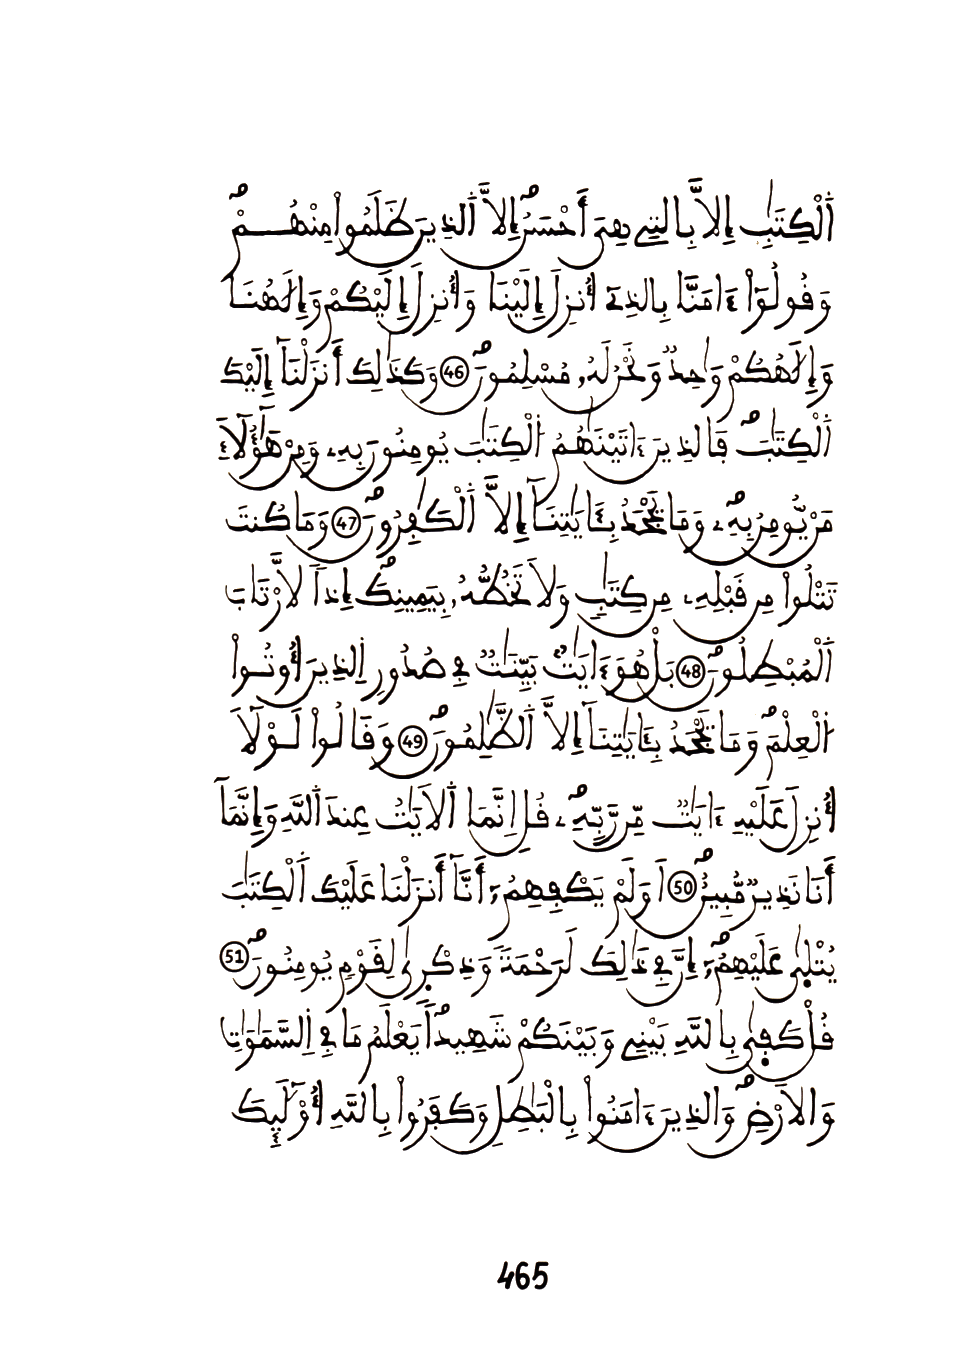 اَ۬لْكِتَٰبِ إِلَّا بِالتِے هِيَ أَحْسَنُۖ إِلَّا اَ۬لذِينَ ظَلَمُواْ مِنْهُمْۖ
وَقُولُوٓاْ ءَامَنَّا بِالذِےٓ أُنزِلَ إِلَيْنَا وَأُنزِلَ إِلَيْكُمْ وَإِلَٰهُنَا
وَإِلَٰهُكُمْ وَٰحِدٞ وَنَحْنُ لَهُۥ مُسْلِمُونَۖ 46 وَكَذَٰلِكَ أَنزَلْنَآ إِلَيْكَ
اَ۬لْكِتَٰبَۖ فَالذِينَ ءَاتَيْنَٰهُمُ اُ۬لْكِتَٰبَ يُومِنُونَ بِهِۦ وَمِنْ هَٰٓؤُلَآءِ
مَنْ يُّومِنُ بِهِۦۖ وَمَا يَجْحَدُ بِـَٔايَٰتِنَآ إِلَّا اَ۬لْكَٰفِرُونَۖ 47 وَمَا كُنتَ
تَتْلُواْ مِن قَبْلِهِۦ مِن كِتَٰبٖ وَلَا تَخُطُّهُۥ بِيَمِينِكَۖ إِذاٗ لَّارْتَابَ
اَ۬لْمُبْطِلُونَۖ 48 بَلْ هُوَ ءَايَٰتُۢ بَيِّنَٰتٞ فِے صُدُورِ اِ۬لذِينَ أُوتُواْ
اُ۬لْعِلْمَۖ وَمَا يَجْحَدُ بِـَٔايَٰتِنَآ إِلَّا اَ۬لظَّٰلِمُونَۖ 49 وَقَالُواْ لَوْلَآ
أُنزِلَ عَلَيْهِ ءَايَٰتٞ مِّن رَّبِّهِۦۖ قُلِ اِنَّمَا اَ۬لَايَٰتُ عِندَ اَ۬للَّهِ وَإِنَّمَآ
أَنَا نَذِيرٞ مُّبِينٌۖ 50 اَوَلَمْ يَكْفِهِمُۥٓ أَنَّآ أَنزَلْنَا عَلَيْكَ اَ۬لْكِتَٰبَ
يُتْل۪ىٰ عَلَيْهِمُۥٓۖ إِنَّ فِے ذَٰلِكَ لَرَحْمَةٗ وَذِكْر۪ىٰ لِقَوْمٖ يُومِنُونَۖ 51
قُلْ كَف۪ىٰ بِاللَّهِ بَيْنِے وَبَيْنَكُمْ شَهِيداٗۖ يَعْلَمُ مَا فِے اِ۬لسَّمَٰوَٰتِ
وَالَارْضِۖ وَالذِينَ ءَامَنُواْ بِالْبَٰطِلِ وَكَفَرُواْ بِاللَّهِ أُوْلَٰٓئِكَ
465